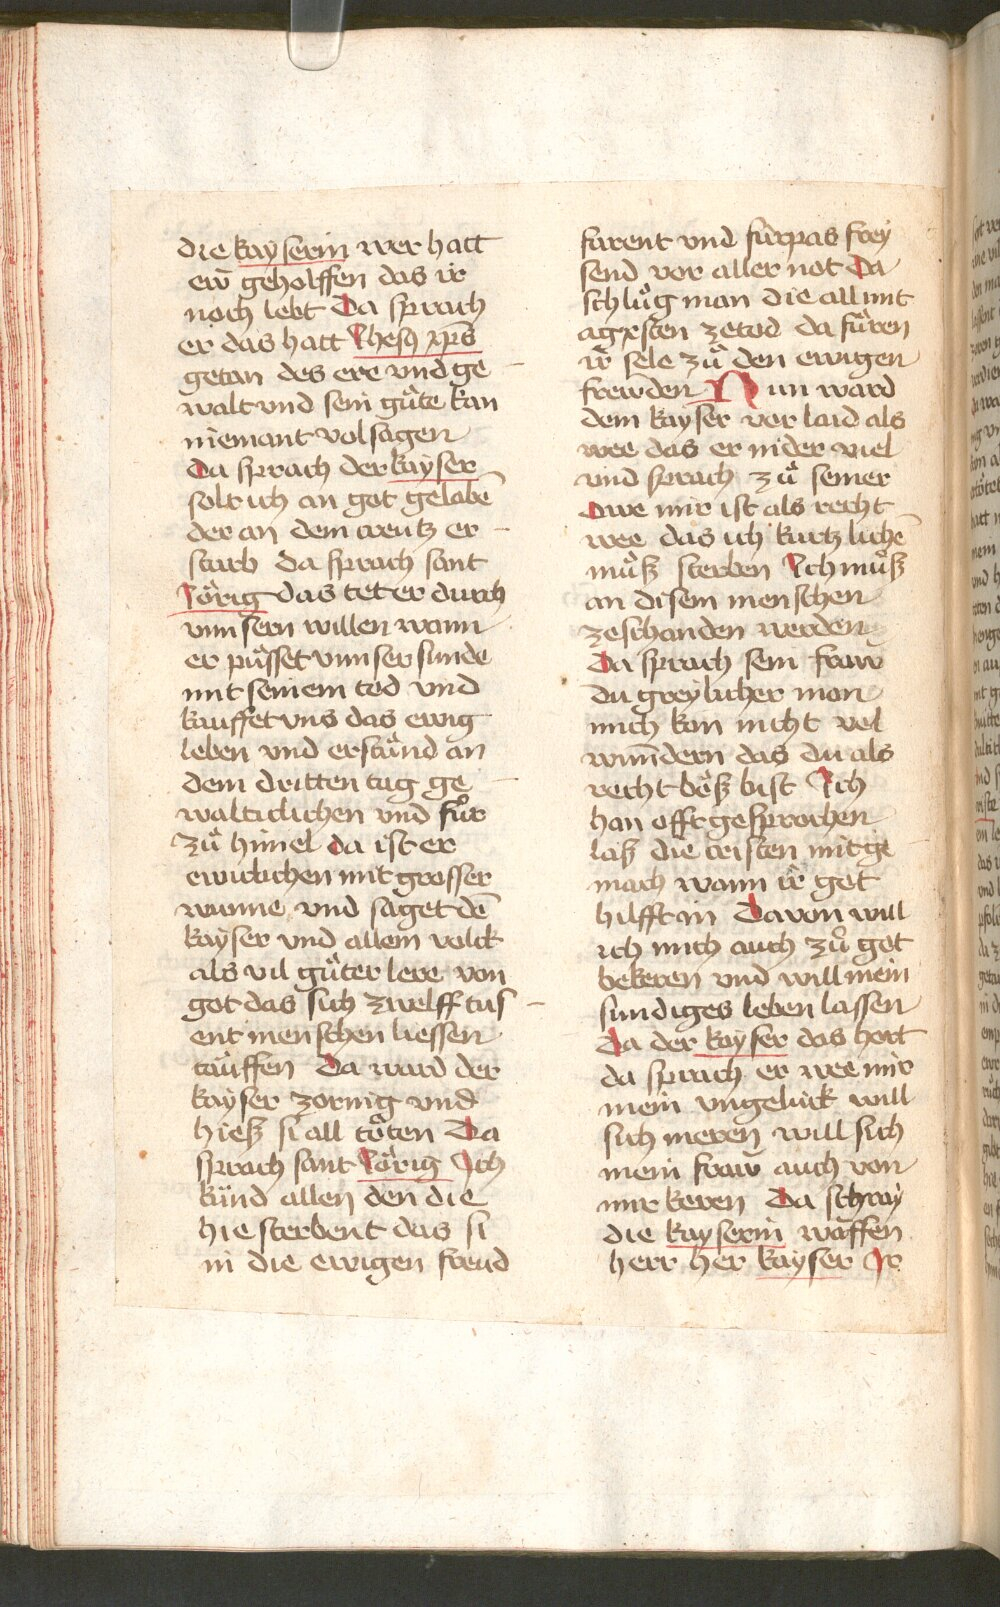 die kayserin wer hatt
ew̄ geholffen das ir
noch lebt Da sprach
er das hatt Jhesꝰ xp̄s
getan des ere vnd ge
walt vnd sein gůte kan
niemant vol sagen
Da sprach der kayser
solt ich an got gelabē
der an dem creutz er
starb da sprach sant
Jörig das tet er durch
vnnsern willen wann
er pűsset vnnser sunde
mit seinem tod vnd
kauffet vns das ewig
leben vnd erständ an
dem dritten tag ge
walticlichen vnd fůr
zů himel da ist er
ewiclichen mit grosser
wunne vnd saget dē
kayser vnd allem volck
als vil gůter lere von
got das sich zwelff tus
ent menschen liessen
täuffen Da ward der
kayser zornig vnd
hiesz si all töten Da
sprach sant Jörig Ich
künd allen den die
hie sterbent das si
in die ewigen freud
farent vnd fürpas frey
send vor aller not Da
schlůg man die all mit
agxsten ze tod da fůren
ir sele zů den ewigen
frewden Nun ward
dem kayser vor laid als
wee das er nider viel
vnd sprach zů seiner
Owe mir ist als recht
wee das ich kurtzlichē
můsz sterben Ich můsz
an disem menschen
ze schanden werden
Da sprach sein fraw
du greylicher man
mich kan nicht vol
wundern das du als
recht bösz bist Ich
han offt gesprochen
lasz die cristen mit ge
mach wann ir got
hilfft in Davon will
ich mich auch zů got
bekeren vnd will mein
sundiges leben lassen
Da der kayser das hort
da sprach er wee mir
mein vngelück will
sich meren will sich
mein fraw auch von
mir keren Da schray
die kayserin waffen
herr her kayser Ir